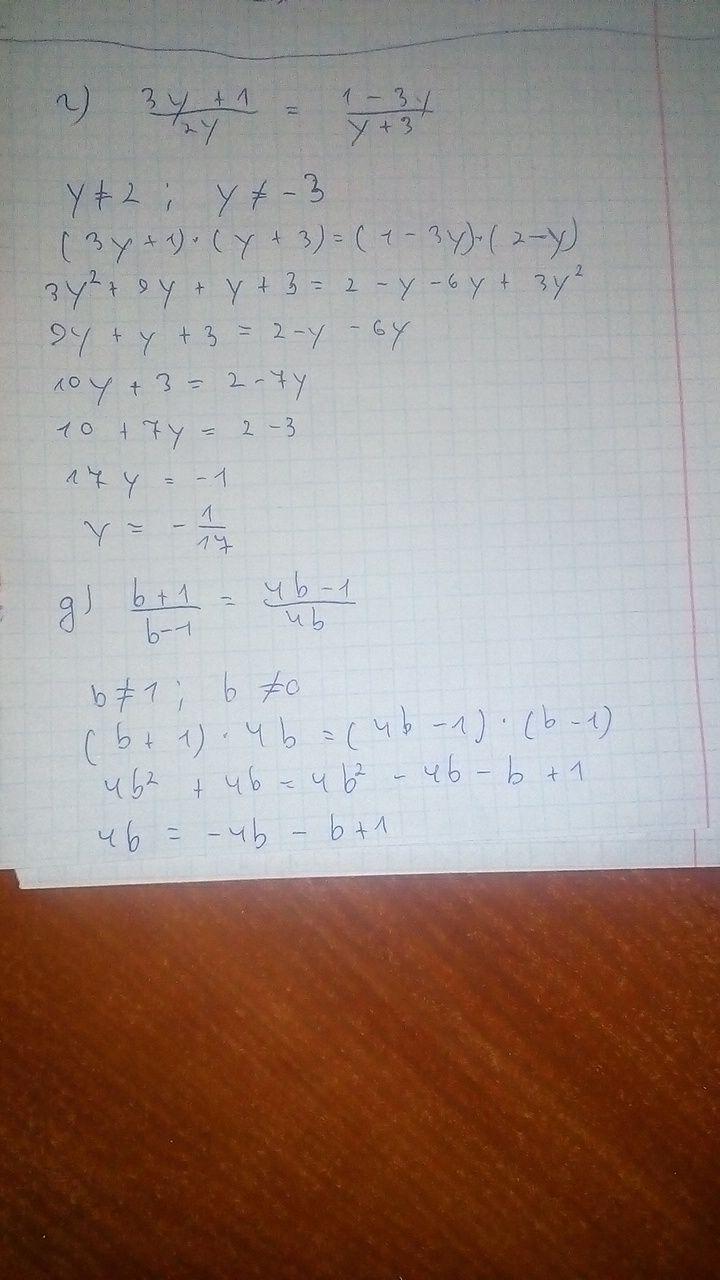 г) (3y + 1)/(2y) = (1 - 3y)/(y + 3)
y ≠ 2 ; y ≠ - 3
(3y + 1)·(y + 3) = (1 - 3y)·(2 - y)
3y² + 9y + y + 3 = 2 - y - 6y + 3y²
9y + y + 3 = 2 - y - 6y
10y + 3 = 2 - 7y
10 + 7y = 2 - 3
17y = -1
y = - 1/17
д) (b + 1)/(b - 1) = (4b - 1)/(4b)
b ≠ 1 ; b ≠ 0
(b + 1) · 4b = (4b - 1) · (b - 1)
4b² + 4b = 4b² - 4b - b + 1
4b = -4b - b + 1